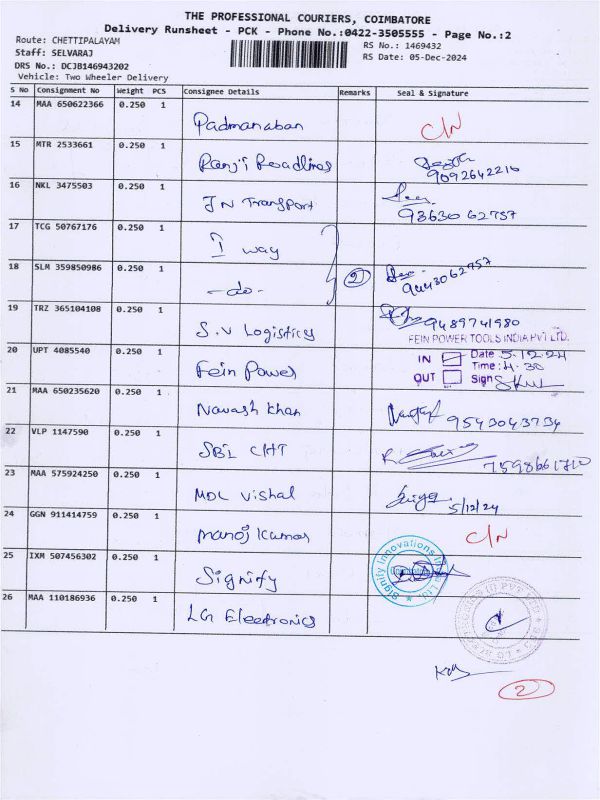 THE PROFESSIONAL COURIERS, COIMBATORE
Delivery Runsheet - PCK - Phone No.:0422-3505555 - Page No.:2
Route: CHETTIPALAYAM
RS No.: 1469432
Staff: SELVARAJ
RS Date: 05-Dec-2024
DRS No.: DCJB146943202
Vehicle: Two Wheeler Delivery
S No Consignment No Weight PCS Consignee Details Remarks Seal & Signature
14 MAA 650622366 0.250 1 Padmanaban C/N
15 MTR 2533661 0.250 1 Ranji Roadlines
9092642216
16 NKL 3475503 0.250 1 JN Transport
93630 62757
17 TCG 50767176 0.250 1 I way
18 SLM 359850986 0.250 1 -do- 2
9443062757
19 TRZ 365104108 0.250 1 S.V Logistics 9489741980
FEIN POWER TOOLS INDIA PVT LTD.
20 UPT 4085540 0.250 1 Fein Power
IN Date 5.12.24
Time: 4.30
OUT Sign
21 MAA 650235620 0.250 1 Navash Khan 9543043734
22 VLP 1147590 0.250 1 SBI CHT 7598661710
23 MAA 575924250 0.250 1 MDL Vishal 5/12/24
24 GGN 911414759 0.250 1 Manoj Kumar C/N
25 IXM 507456302 0.250 1 Signify
Signify Innovations
26 MAA 110186936 0.250 1 LG Electronics
2